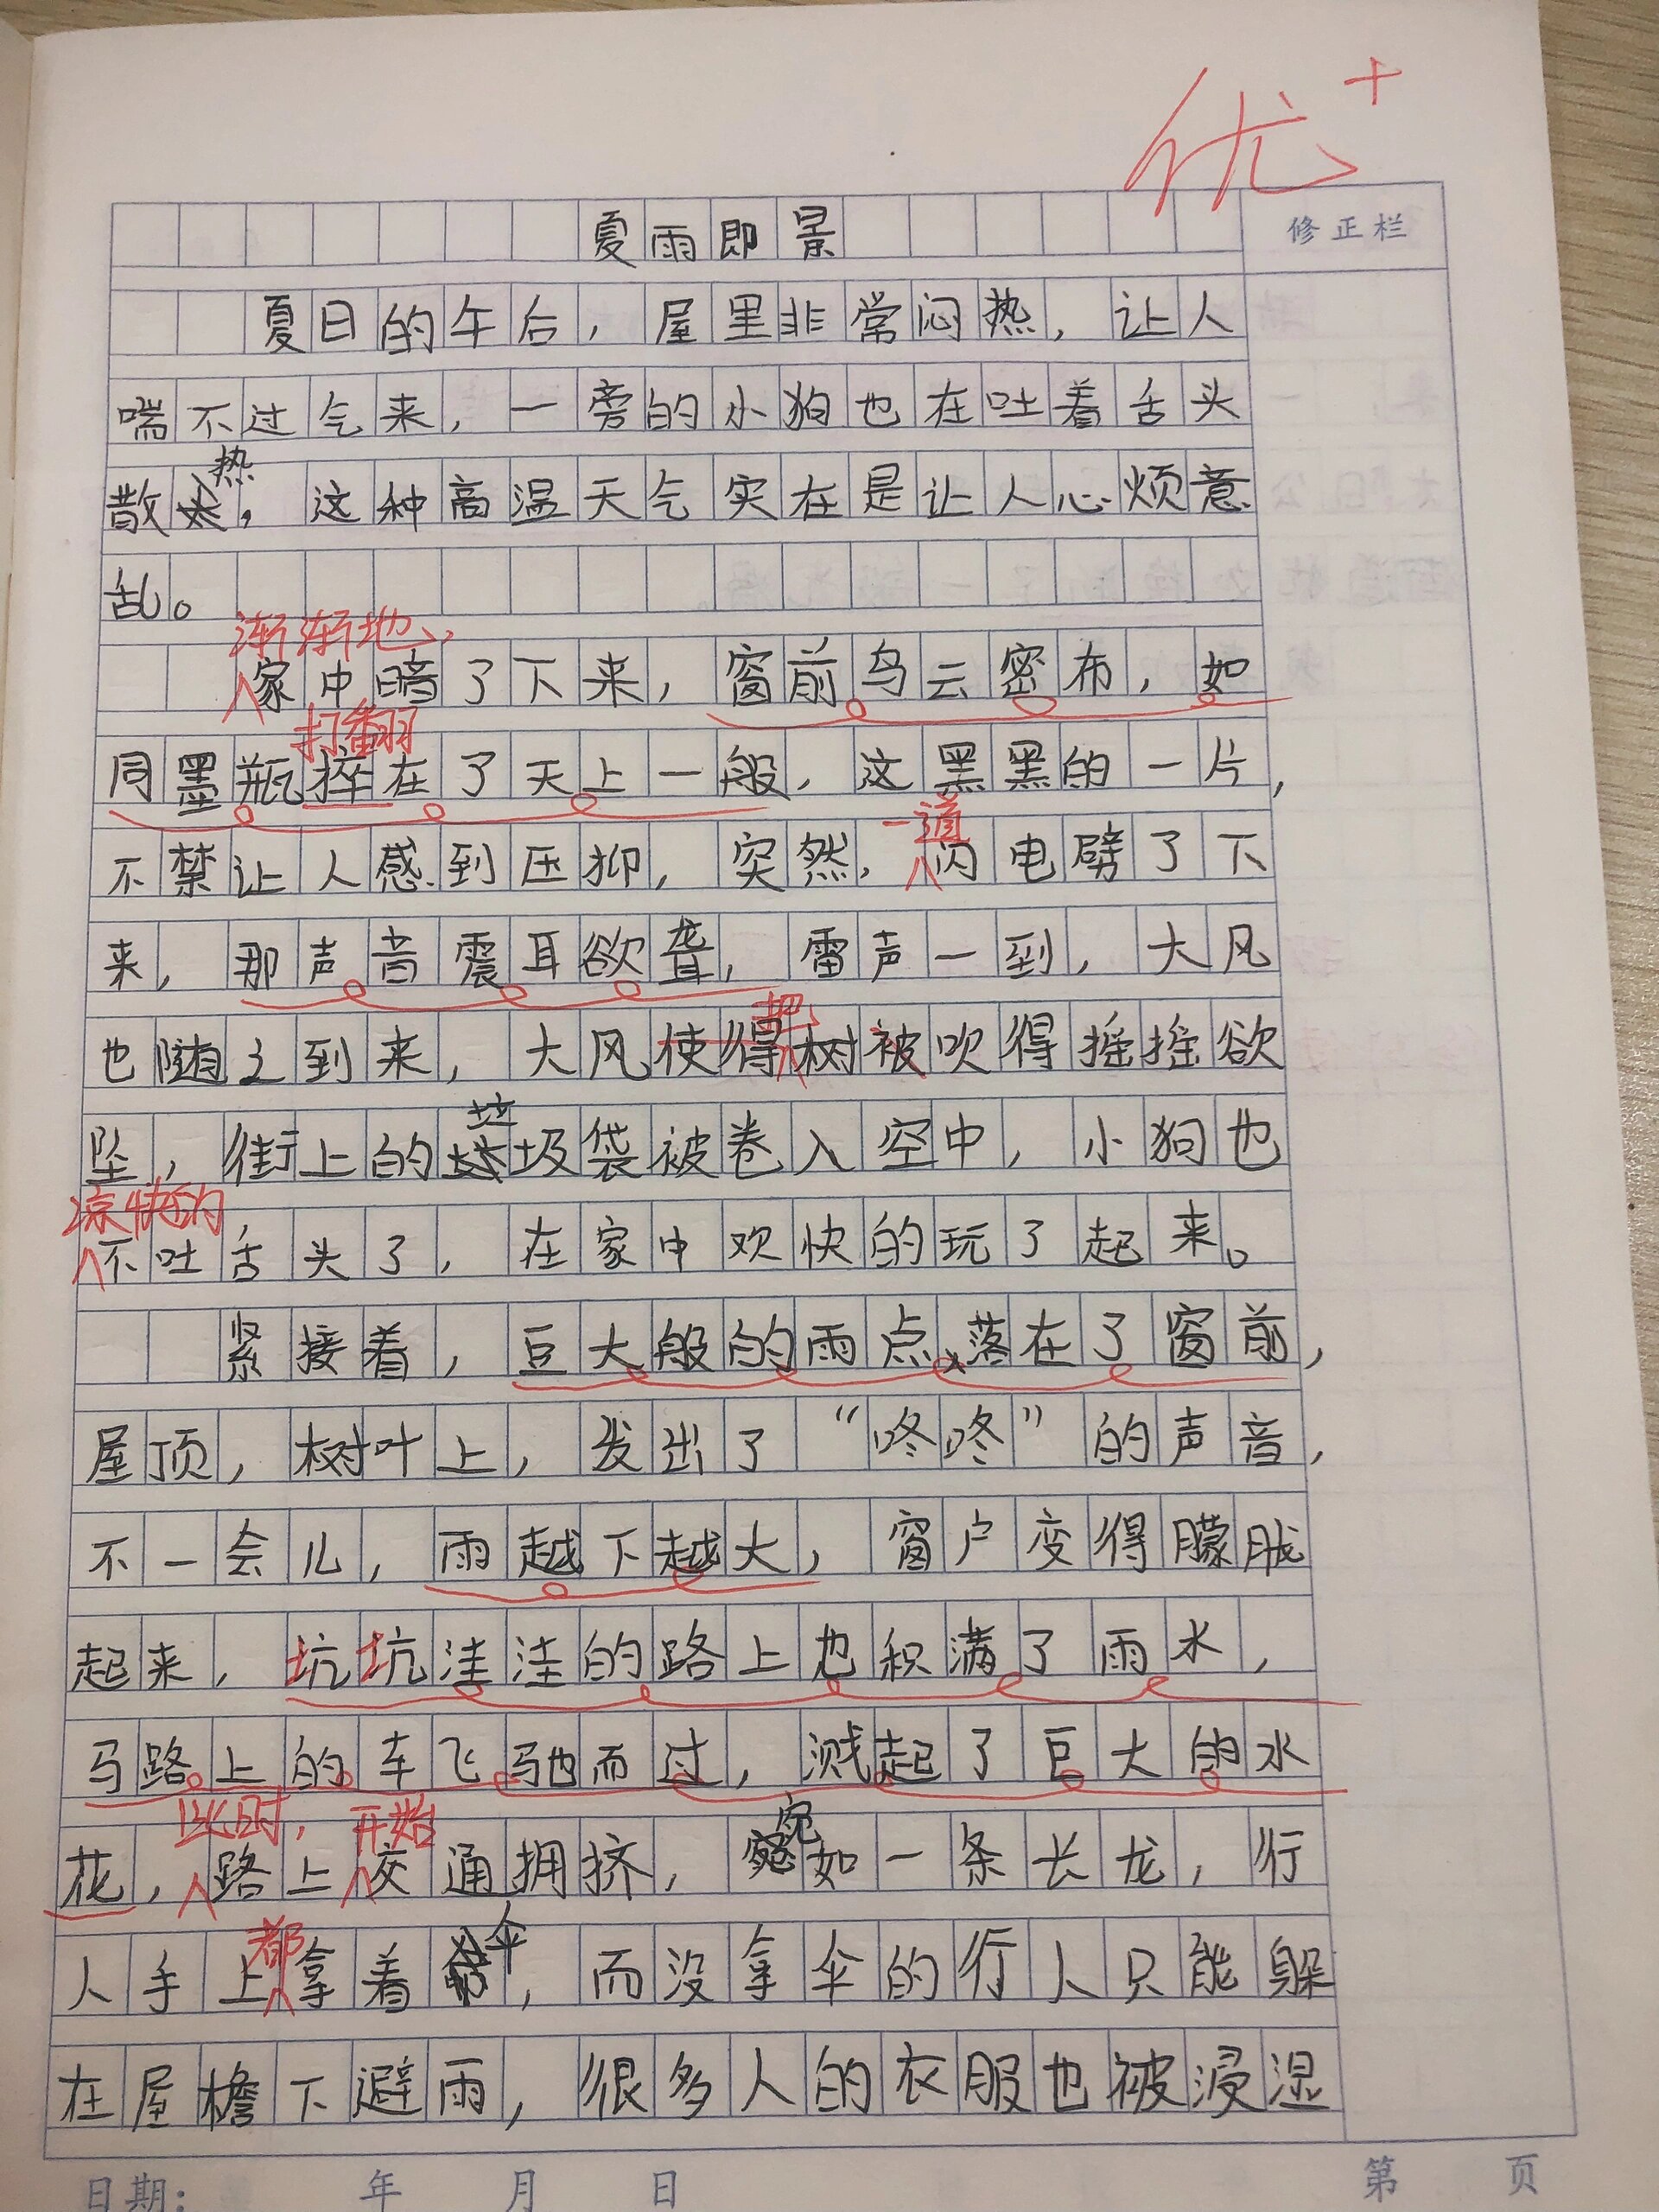 优+
夏雨即景
修正栏
夏日的午后，屋里非常闷热，让人
喘不过气来，一旁的小狗也在吐着舌头
热
散，这种高温天气实在是让人心烦意
乱。
渐渐地，
家中暗了下来，窗前乌云密布，如
打翻
同墨瓶摔在了天上一般，这黑黑的一片，
一道
不禁让人感到压抑，突然，闪电劈了下
来，那声音震耳欲聋，雷声一到，大风
把
也随之到来，大风使得树被吹得摇摇欲
垃
坠，街上的圾袋被卷入空中，小狗也
凉快的
不吐舌头了，在家中欢快的玩了起来。
紧接着，豆大般的雨点落在了窗前，
屋顶，树叶上，发出了“咚咚”的声音，
不一会儿，雨越下越大，窗户变得朦胧
起来，坑坑洼洼的路上也积满了雨水，
马路上的车飞驰而过，溅起了巨大的水
此时，开始
宛
花，路上交通拥挤，如一条长龙，行
都
伞
人手上拿着，而没拿伞的行人只能躲
在屋檐下避雨，很多人的衣服也被浸湿
日期： 年 月 日
第 页